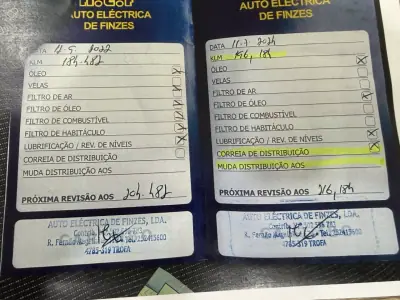 AUTO ELÉCTRICA
DE FINZES
DATA 4.5.2022
KLM 184.482
ÓLEO
VELAS
FILTRO DE AR
FILTRO DE ÓLEO
FILTRO DE COMBUSTÍVEL
FILTRO DE HABITÁCULO
LUBRIFICAÇÃO / REV. DE NÍVEIS
CORREIA DE DISTRIBUIÇÃO
MUDA DISTRIBUIÇÃO AOS
PRÓXIMA REVISÃO AOS 204.482
AUTO ELÉCTRICA DE FINZES, LDA.
4785-319 TROFA
AUTO ELÉCTRICA
DE FINZES
DATA
KLM 196,184
ÓLEO
VELAS
FILTRO DE AR
FILTRO DE ÓLEO
FILTRO DE COMBUSTÍVEL
FILTRO DE HABITÁCULO
LUBRIFICAÇÃO / REV. DE NÍVEIS
CORREIA DE DISTRIBUIÇÃO
MUDA DISTRIBUIÇÃO AOS
PRÓXIMA REVISÃO AOS 216,184
AUTO ELÉCTRICA DE FINZES, LDA.
4785-319 TROFA